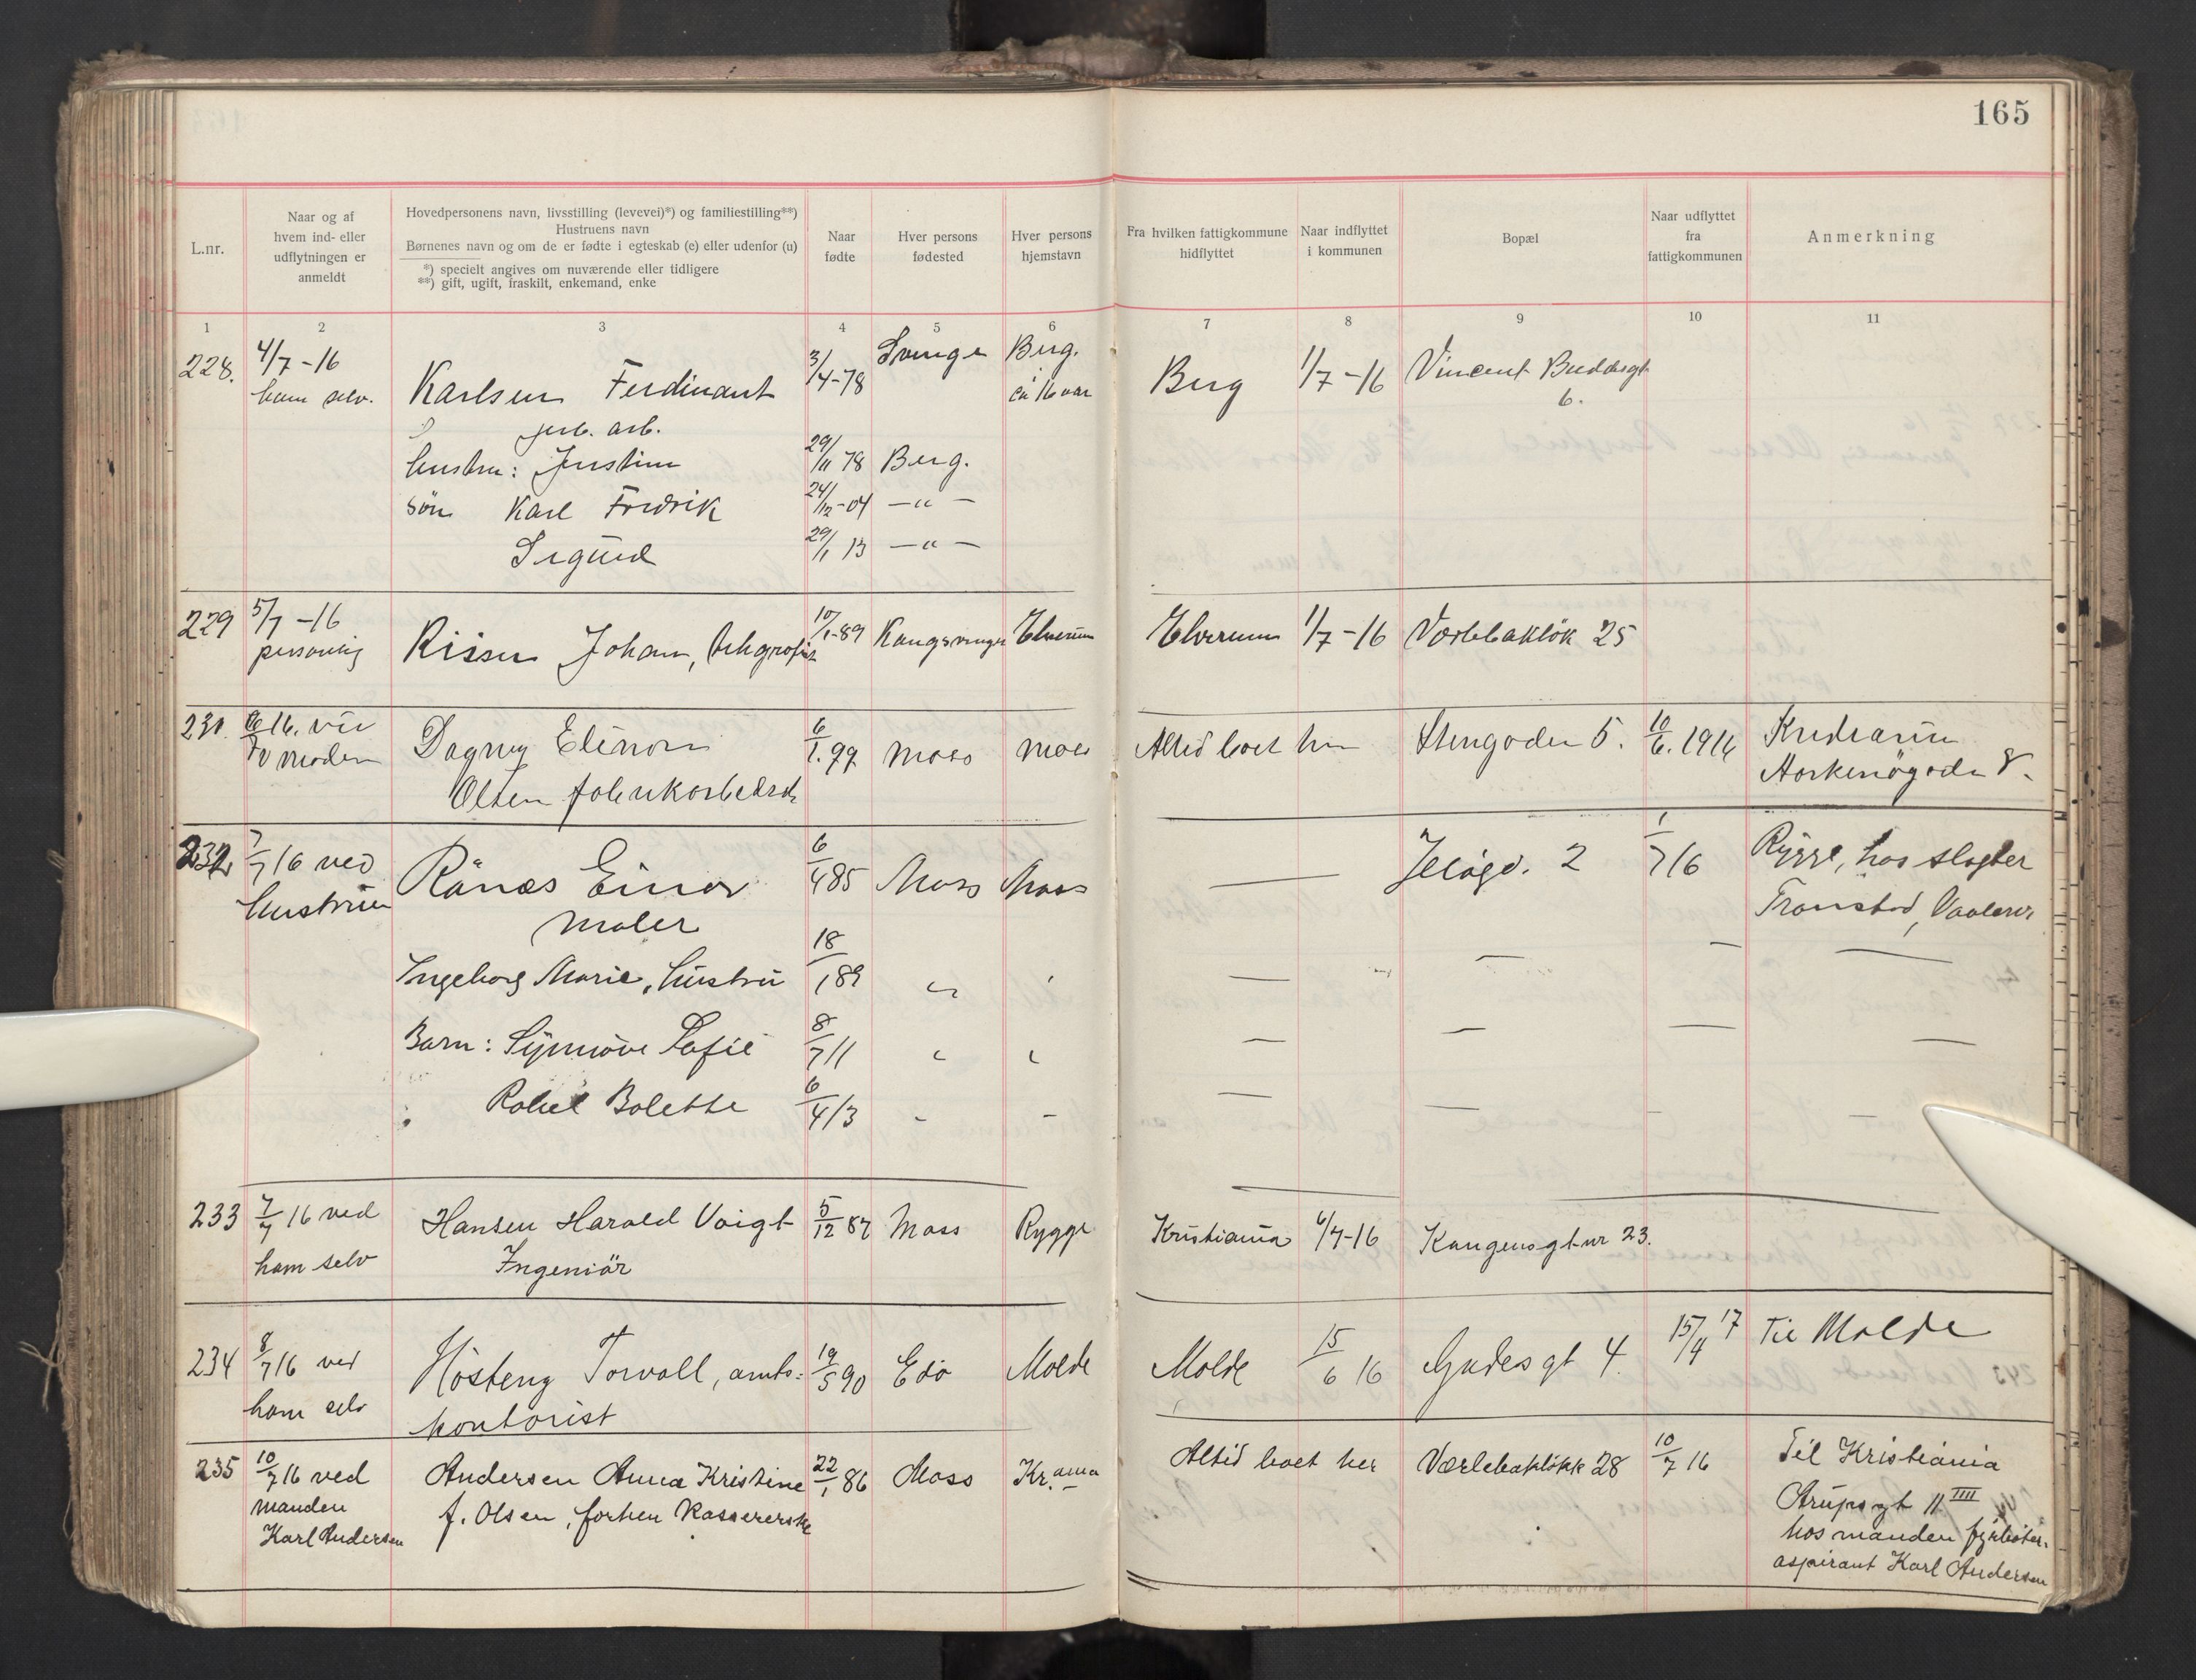 165
L.nr.
Naar og af
hvem ind- eller
udflytningen er
anmeldt
Hovedpersonens navn, livsstilling (levevei)*) og familiestilling**)
Hustruens navn
Børnenes navn og om de er fødte i egteskab (e) eller udenfor (u)
*) specielt angives om nuværende eller tidligere
**) gift, ugift, fraskilt, enkemand, enke
Naar
fødte
Hver persons
fødested
Hver persons
hjemstavn
Fra hvilken fattigkommune
hidflyttet
Naar indflyttet
i kommunen
Bopæl
Naar udflyttet
fra
fattigkommunen
Anmerkning
1 2 3 4 5 6 7 8 9 10 11
228. 4/7-16 3/4-78 Berg. Berg 1/7-16 Vincent Buddesgt
ham selv. Karlsen Ferdinant 6.
arb.
hustru: Justine 29/11 78 Berg.
søn Karl Fredrik 24/12-04 —"—
Sigurd 29/1 13 —"—
229 5/7-16 Rissen Johan, 10/1-89 Kongsvinger Elverum Elverum 1/7-16 Værlebakløk 25
personlig
230. 16. Dagny Elinora 6/1.99 Moss Moss Altid boet her Stengaden 5. 10/6.1916 Kristiania
moderen Olsen
232 7/7 16 ved Rånæs Einar 6/4 85 Moss Moss — Jeløgd. 2 1/7 16 Rygge, hos slagter
hustruen maler Vaalerv.
Ingeborg Marie, hustru 18/1 89 "
Barn: Synnøve Sofie 8/7 11 "
Rakel Bolette 6/4 13
233 7/7 16 ved Hansen Harald Voigt 5/12 87 Moss Rygge Kristiania 6/7-16 Kongensgt nr 23.
ham selv Ingeniør
234 8/7 16 ved Høsteng Torvall, amts- 19/5 90 Edø Molde Molde 15/6 16 Gudesgt 4. 15/4 17 Til Molde
ham selv kontorist
235 10/7 16 ved Andersen Anna Kristine 22/1 86 Moss Kr.ania Altid boet her Værlebakløkk 28 10/7 16 Til Kristiania
manden f. Olsen, forhen Kassererske Arupsgt 11 IIII
Karl Andersen hos manden fyrbøter-
aspirant Karl Andersen